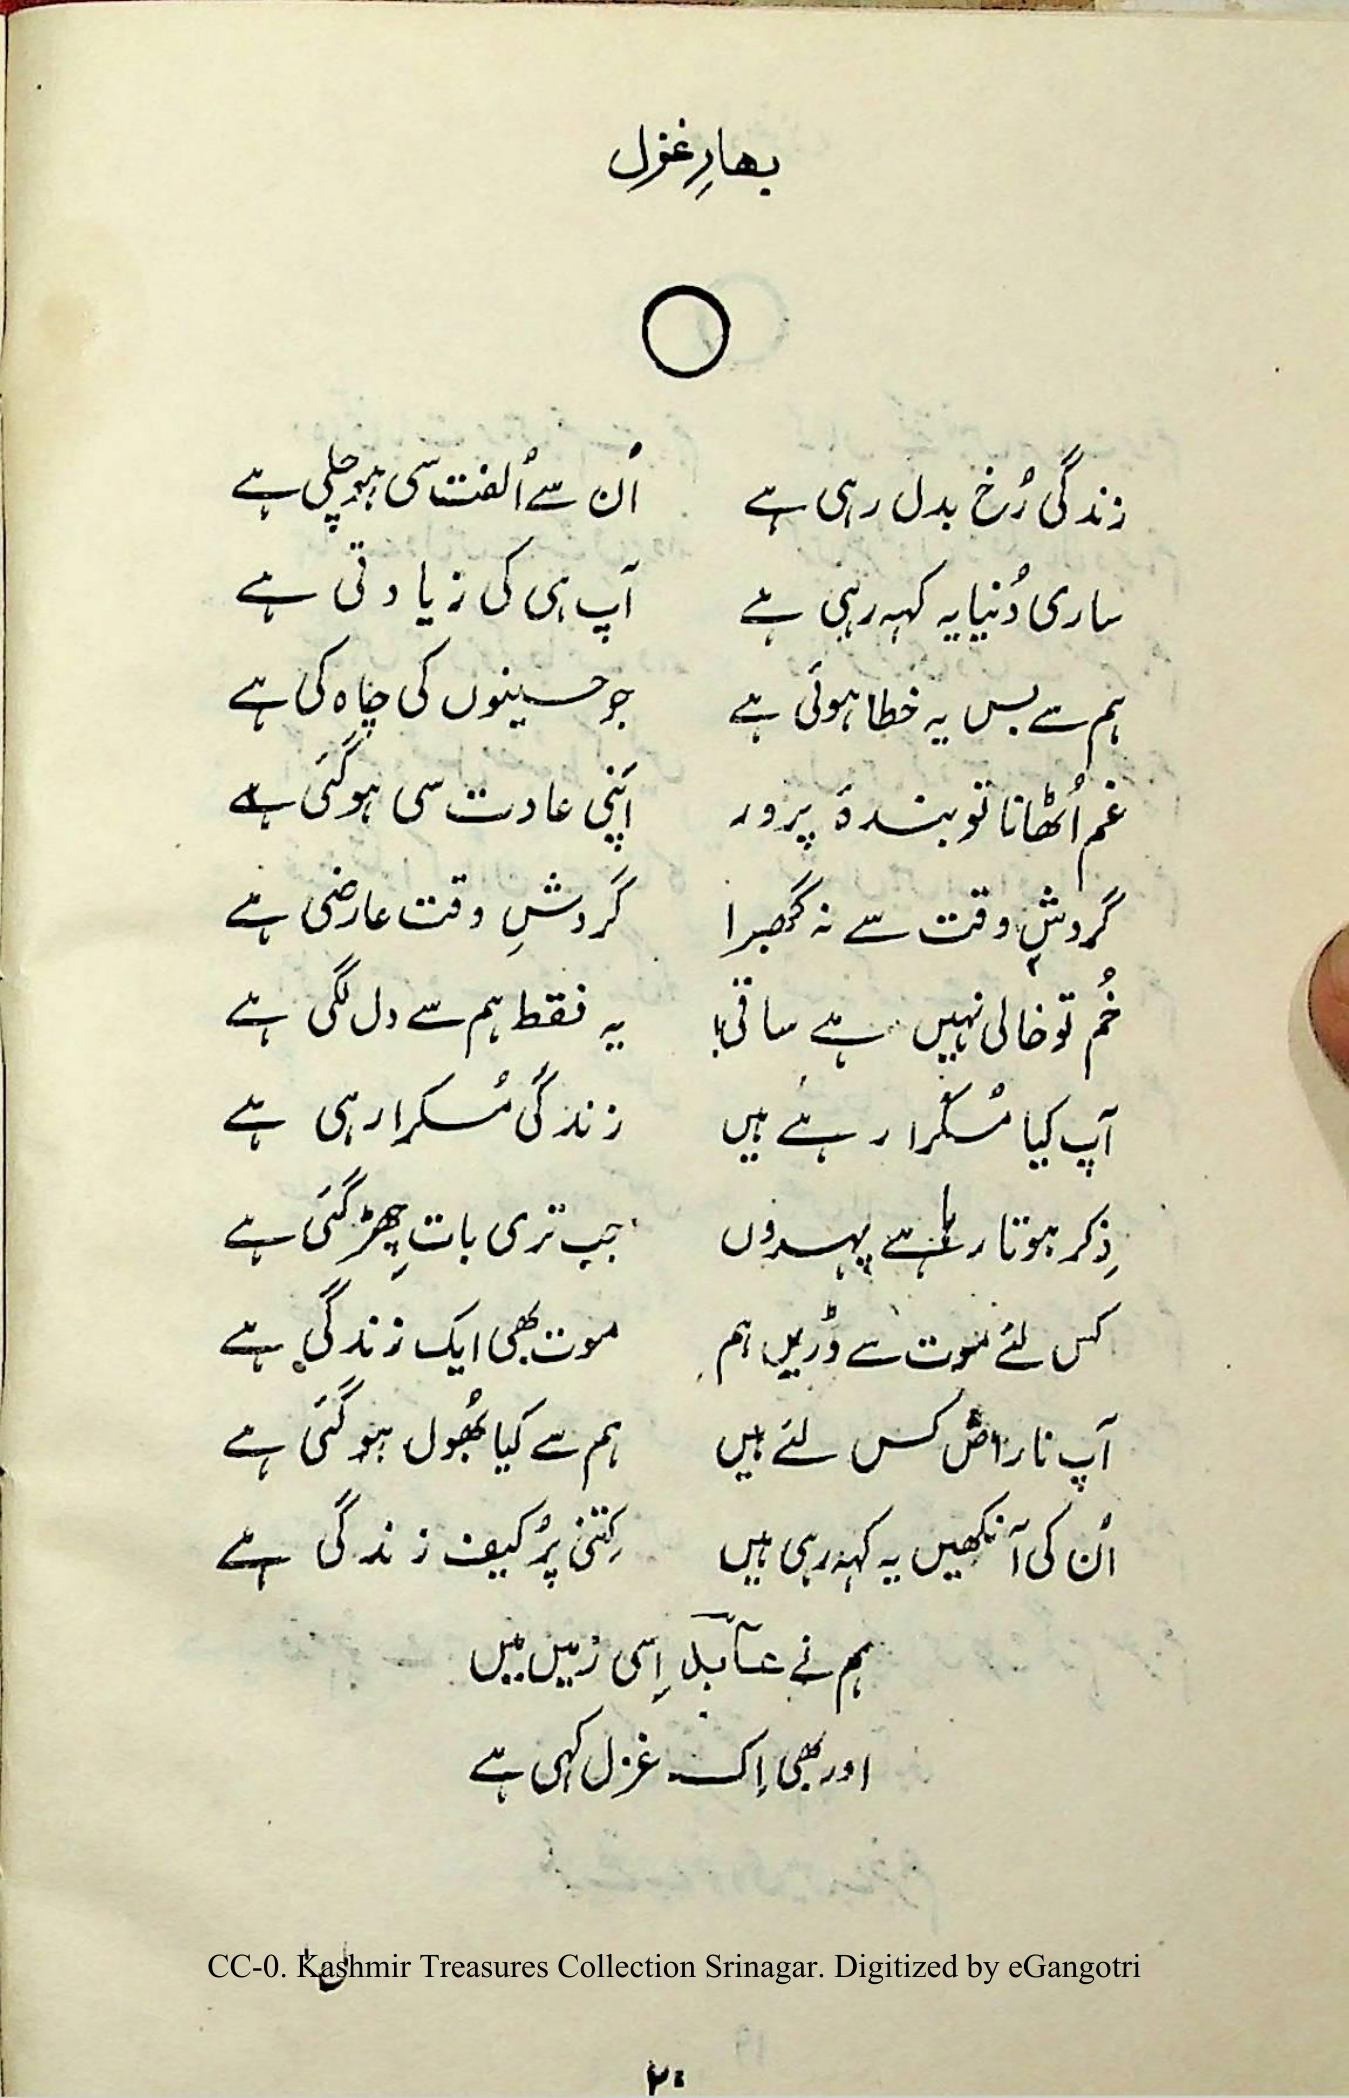 بہارِ غزل
زندگی رُخ بدل رہی ہے اُن سے اُلفت سی ہو چلی ہے
ساری دُنیا یہ کہہ رہی ہے آپ ہی کی زیادتی ہے
ہم سے بس یہ خطا ہوئی ہے جو حسینوں کی چاہ کی ہے
غم اُٹھانا تو بندۂ پرور اَپنی عادت سی ہو گئی ہے
گردشِ وقت سے نہ گھبرا گردشِ وقت عارضی ہے
خُم تو خالی نہیں ہے ساقی! یہ فقط ہم سے دل لگی ہے
آپ کیا مُسکرا رہے ہیں زندگی مُسکرا رہی ہے
ذِکر ہوتا رہا ہے پہروں جب تری بات چھِڑ گئی ہے
کس لئے موت سے ڈریں ہم موت بھی ایک زندگی ہے
آپ ناراض کس لئے ہیں ہم سے کیا بھُول ہو گئی ہے
اُن کی آنکھیں یہ کہہ رہی ہیں کِتنی پُر کیف زندگی ہے
ہم نے عابد اِسی زمیں میں
اور بھی اِک غزل کہی ہے
CC-0. Kashmir Treasures Collection Srinagar. Digitized by eGangotri
۲۰